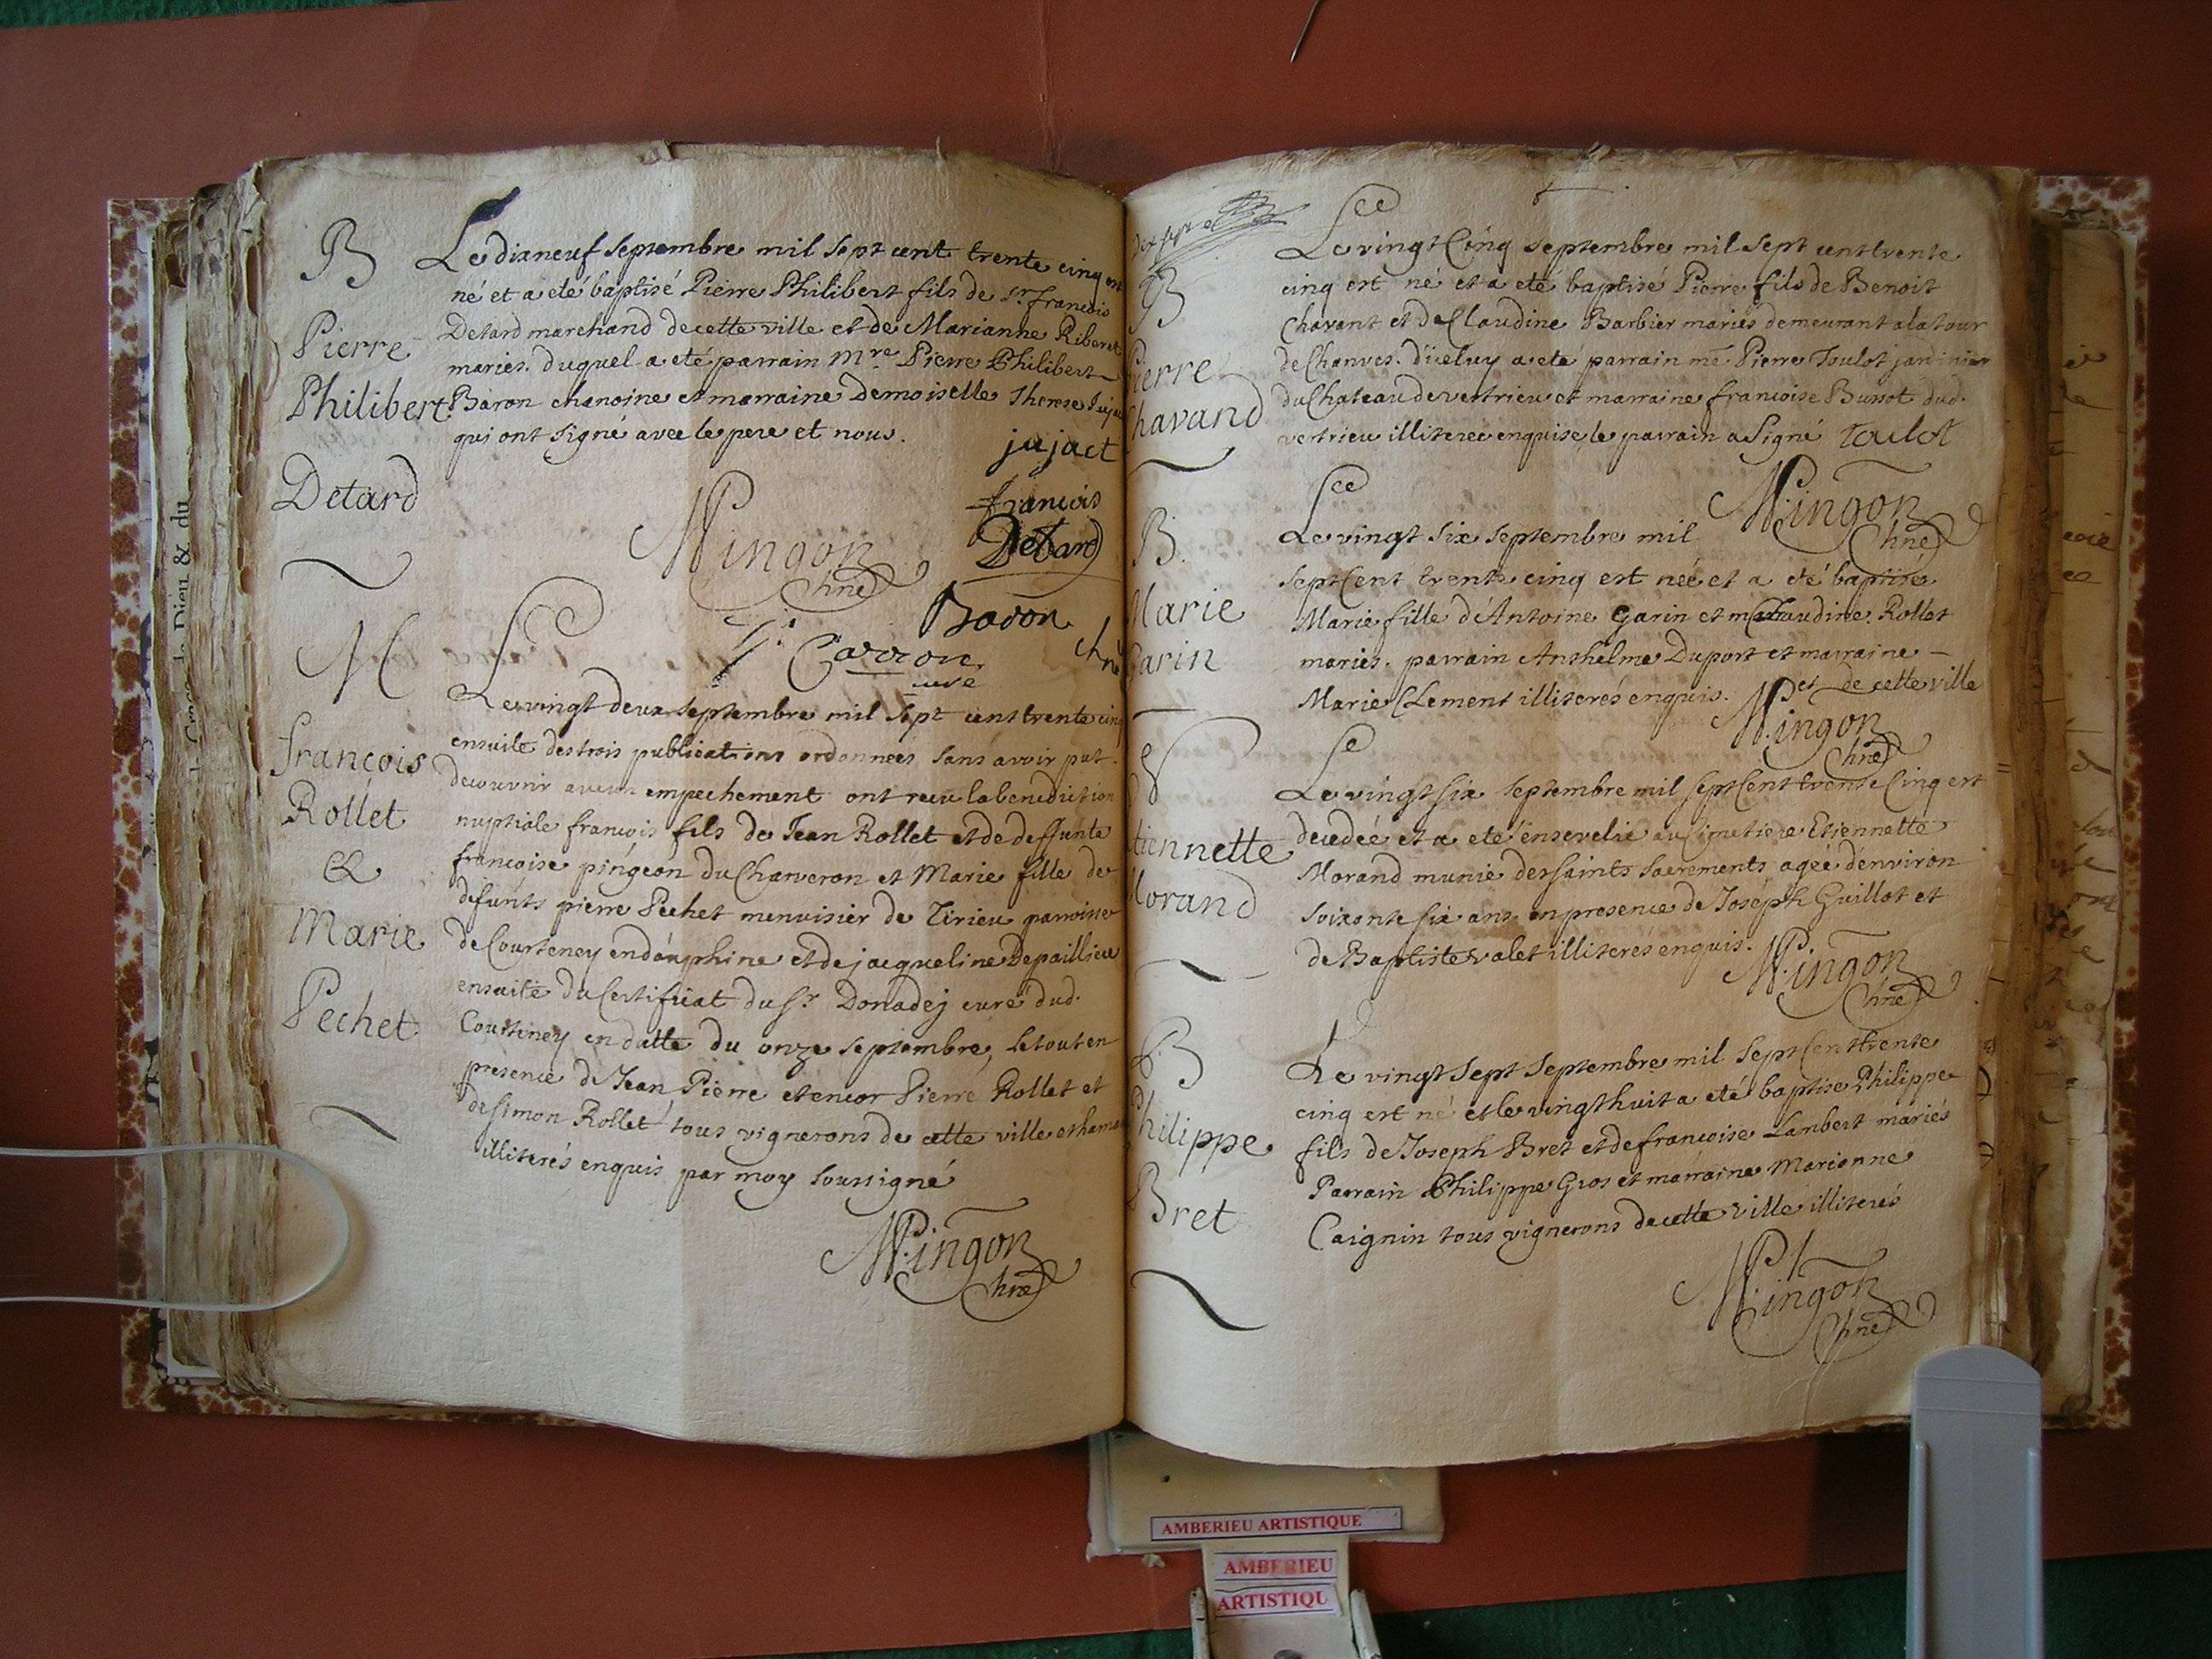 B
Pierre
Philibert
Detard
Le dixneuf septembre mil sept cent trente cinq est
né et a eté baptisé Pierre Philibert fils de Sr. francois
Detard marchand de cette ville et de Marianne Riberet
mariés. duquel a eté parrain Mre. Pierre Philibert
Baron chanoine et marraine Demoiselle Therese
qui ont signé avec le pere et nous.
jujact
françois
Detard
Mingon
chne
Baron
chne
Carron
curé
M
françois
Rollet
&
Marie
Pechet
Le vingt deux septembre mil sept cent trente cinq
ensuite des trois publications ordonneés sans avoir put
decouvrir aucun empechement ont receu la benediction
nuptiale françois fils de Jean Rollet et de deffunte
francoise pingeon du Chaveron et Marie fille de
défunts pierre Pechet menuisier de Tirieu parroisse
de Courteney en dauphine et de jacqueline Depaillieu
ensuite du Certificat du Sr. Donadej curé dud.
Courteney en datte du onze septembre, le tout en
presence de Jean Pierre et encor Pierre Rollet et
de simon Rollet tous vignerons de cette ville et
illiterés enquis par moy soussigné
Mingon
chne
B
Pierre
Chavand
Le vingt Cinq septembre mil sept cent trente
cinq est né et a eté baptisé Pierre fils de Benoit
Chavant et de Claudine Barbier mariés demeurant a la tour
de Chanves. d'iceluy a eté parrain me. Pierre Toulot jardinier
du Chateau de vertrieu et marraine francoise Bussot dud.
vertrieu illitereé enquise, le parrain a signé Toulot
Mingon
chne
B.
Marie
Garin
Le vingt six septembre mil
sept Cent trente cinq est neé et a eté baptisée
Marie fille d'Antoine Garin et Claudine Rollet
mariés. parrain Anthelme Duport et marraine
Marie Clement illiterés enquis. et de cette ville
Mingon
chne
Etiennette
Morand
Le vingt six septembre mil sept Cent trente Cinq est
decedeé et a eté ensevelie au Cimetiere Etiennette
Morand munie des saints sacrements ageé d'environ
soixante six ans en presence de Joseph Guillot et
de Baptiste valet illiterés enquis.
Mingon
chne
B
Philippe
Bret
Le vingt sept septembre mil sept Cent trente
cinq est né et le vingt huit a eté baptise Philippe
fils de Joseph Bret et de francoise Lambert mariés
Parrain Philippe Gros et marraine Marianne
Caignin tous vignerons de cette ville illiterés
Mingon
chne
AMBERIEU ARTISTIQUE
AMBERIEU
ARTISTIQU